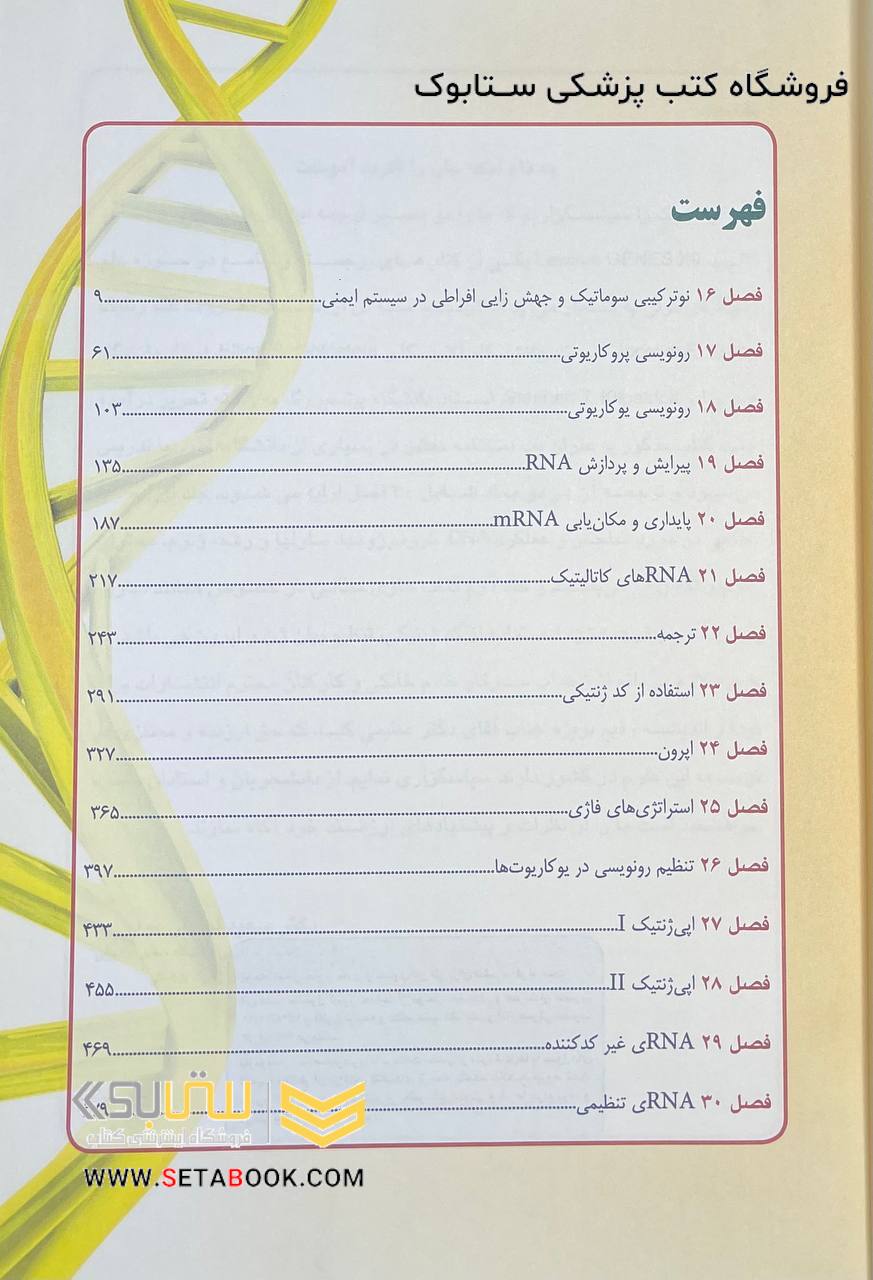 فروشگاه کتب پزشکی ستابوک
فهرست
فصل ۱۶ نوترکیبی سوماتیک و جهش زایی افراطی در سیستم ایمنی........۹
فصل ۱۷ رونویسی پروکاریوتی........۶۱
فصل ۱۸ رونویسی یوکاریوتی........۱۰۳
فصل ۱۹ پیرایش و پردازش RNA........۱۳۵
فصل ۲۰ پایداری و مکان‌یابی mRNA........۱۸۷
فصل ۲۱ RNAهای کاتالیتیک........۲۱۷
فصل ۲۲ ترجمه........۲۴۳
فصل ۲۳ استفاده از کد ژنتیکی........۲۹۱
فصل ۲۴ اپرون........۳۲۷
فصل ۲۵ استراتژی‌های فاژی........۳۶۵
فصل ۲۶ تنظیم رونویسی در یوکاریوت‌ها........۳۹۷
فصل ۲۷ اپی‌ژنتیک I........۴۳۳
فصل ۲۸ اپی‌ژنتیک II........۴۵۵
فصل ۲۹ RNAی غیر کدکننده........۴۶۹
فصل ۳۰ RNAی تنظیمی........
ستابوک
فروشگاه اینترنتی کتاب
WWW.SETABOOK.COM